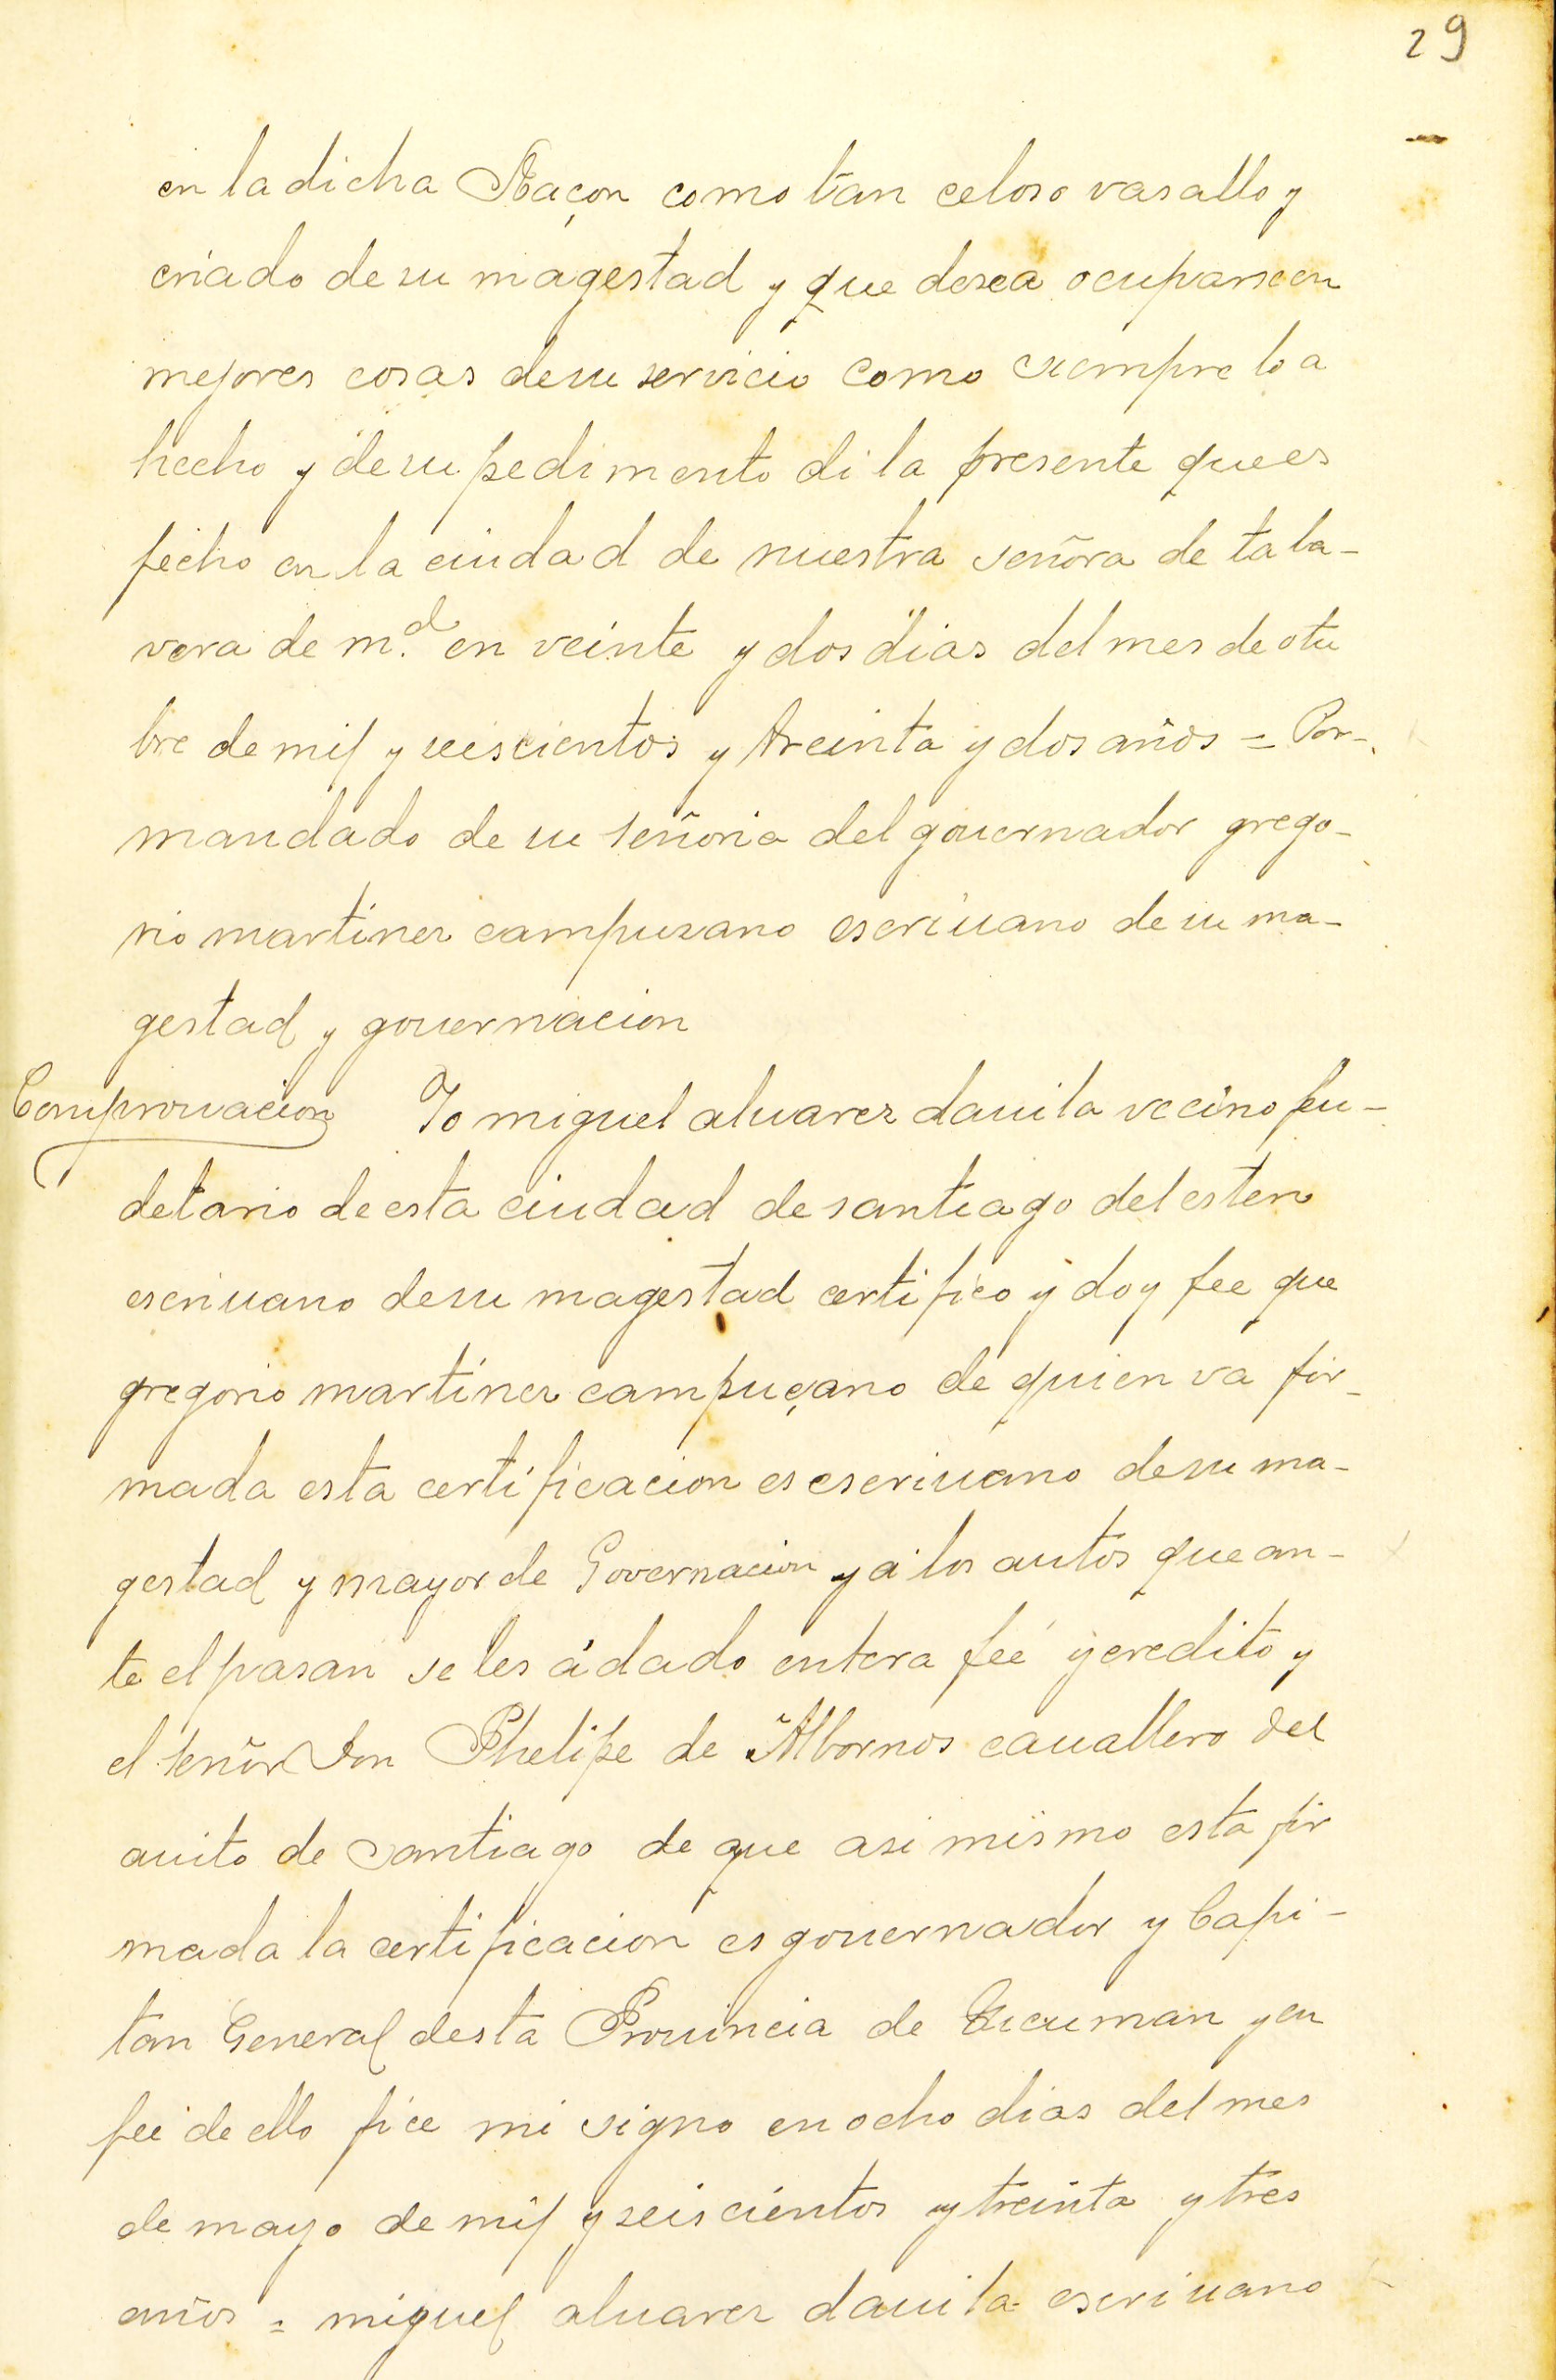 29
en la dicha Raçon como tan celoso vasallo y
criado de su magestad y que desea ocuparse en
mejores cosas de su servicio como siempre lo a
hecho y de su pedimento di la presente que es
fecho en la ciudad de nuestra señora de tala-
vera de m.d en veinte y dos dias del mes de otu
bre de mil y seiscientos y treinta y dos años = Por-
mandado de su señoria del gouernador grego-
rio martinez campuzano escriuano de su ma-
gestad y gouernacion
Comprouacion Yo miguel aluarez dauila vecino feu-
detario de esta ciudad de santiago del estero
escriuano de su magestad certifico y doy fee que
gregorio martinez campuçano de quien va fir-
mada esta certificacion es escriuano de su ma-
gestad y mayor de Governacion y a los autos que an-
te el pasan se les á dado entera feé y credito y
el señor Don Phelipe de Albornos cauallero del
auito de Santiago de que asi mismo esta fir
mada la certificacion es gouernador y Capi-
tan General desta Prouincia de Tucuman y en
feé de ello fice mi signo en ocho dias del mes
de mayo de mil y seiscientos y treinta y tres
años = miguel aluarez dauila escriuano